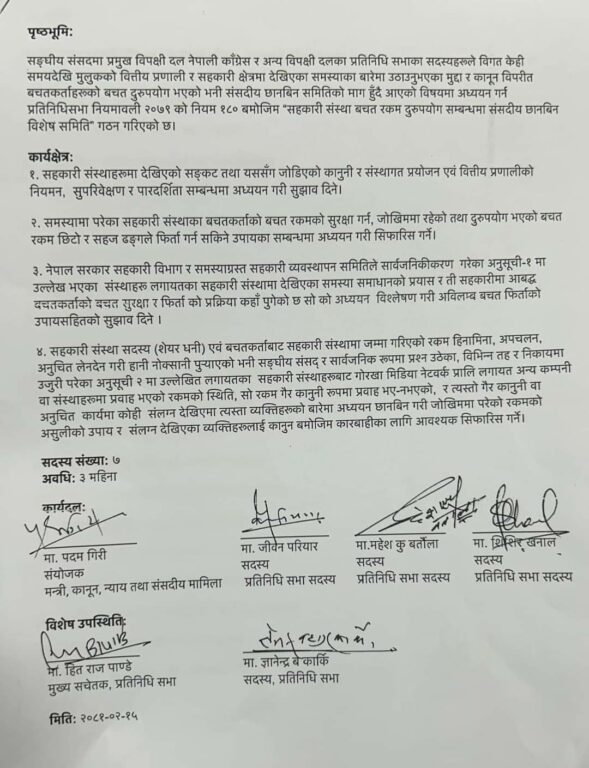 पृष्ठभूमिः
सङ्घीय संसदमा प्रमुख विपक्षी दल नेपाली काँग्रेस र अन्य विपक्षी दलका प्रतिनिधि सभाका सदस्यहरूले विगत केही
समयदेखि मुलुकको वित्तीय प्रणाली र सहकारी क्षेत्रमा देखिएका समस्याका बारेमा उठाउनुभएका मुद्दा र कानून विपरीत
बचतकर्ताहरूको बचत दुरुपयोग भएको भनी संसदीय छानबिन समितिको माग हुँदै आएको विषयमा अध्ययन गर्न
प्रतिनिधिसभा नियमावली २०७९ को नियम १८० बमोजिम “सहकारी संस्था बचत रकम दुरुपयोग सम्बन्धमा संसदीय छानबिन
विशेष समिति” गठन गरिएको छ।
कार्यक्षेत्रः
१. सहकारी संस्थाहरूमा देखिएको सङ्कट तथा यससँग जोडिएको कानुनी र संस्थागत प्रयोजन एवं वित्तीय प्रणालीको
नियमन, सुपरिवेक्षण र पारदर्शिता सम्बन्धमा अध्ययन गरी सुझाव दिने।
२. समस्यामा परेका सहकारी संस्थाका बचतकर्ताको बचत रकमको सुरक्षा गर्न, जोखिममा रहेको तथा दुरुपयोग भएको बचत
रकम छिटो र सहज ढङ्गले फिर्ता गर्न सकिने उपायका सम्बन्धमा अध्ययन गरी सिफारिस गर्ने।
३. नेपाल सरकार सहकारी विभाग र समस्याग्रस्त सहकारी व्यवस्थापन समितिले सार्वजनिकीकरण गरेका अनुसूची-१ मा
उल्लेख भएका संस्थाहरू लगायतका सहकारी संस्थामा देखिएका समस्या समाधानको प्रयास र ती सहकारीमा आबद्ध
बचतकर्ताको बचत सुरक्षा र फिर्ता को प्रक्रिया कहाँ पुगेको छ सो को अध्ययन विश्लेषण गरी अविलम्ब बचत फिर्ताको
उपायसहितको सुझाव दिने ।
४. सहकारी संस्था सदस्य (शेयर धनी) एवं बचतकर्ताबाट सहकारी संस्थामा जम्मा गरिएको रकम हिनामिना, अपचलन,
अनुचित लेनदेन गरी हानी नोक्सानी पुऱ्याएको भनी सङ्घीय संसद् र सार्वजनिक रूपमा प्रश्न उठेका, विभिन्न तह र निकायमा
उजुरी परेका अनुसूची २ मा उल्लेखित लगायतका सहकारी संस्थाहरूबाट गोरखा मिडिया नेटवर्क प्रालि लगायत अन्य कम्पनी
वा संस्थाहरूमा प्रवाह भएको रकमको स्थिति, सो रकम गैर कानुनी रूपमा प्रवाह भए-नभएको, र त्यस्तो गैर कानुनी वा
अनुचित कार्यमा कोही संलग्न देखिएमा त्यस्ता व्यक्तिहरूको बारेमा अध्ययन छानबिन गरी जोखिममा परेको रकमको
असुलीको उपाय र संलग्न देखिएका व्यक्तिहरूलाई कानुन बमोजिम कारबाहीका लागि आवश्यक सिफारिस गर्ने।
सदस्य संख्याः ७
अवधिः ३ महिना
कार्यदलः
मा. पदम गिरी
संयोजक
मन्त्री, कानून, न्याय तथा संसदीय मामिला
मा. जीवन परियार
सदस्य
प्रतिनिधि सभा सदस्य
मा.महेश कु बर्तौला
सदस्य
प्रतिनिधि सभा सदस्य
मा. शिशिर खनाल
सदस्य
प्रतिनिधि सभा सदस्य
विशेष उपस्थितिः
मा. हित राज पाण्डे
मुख्य सचेतक, प्रतिनिधि सभा
मा. ज्ञानेन्द्र ब कार्कि
सदस्य, प्रतिनिधि सभा
मितिः २०८१-०२-१५